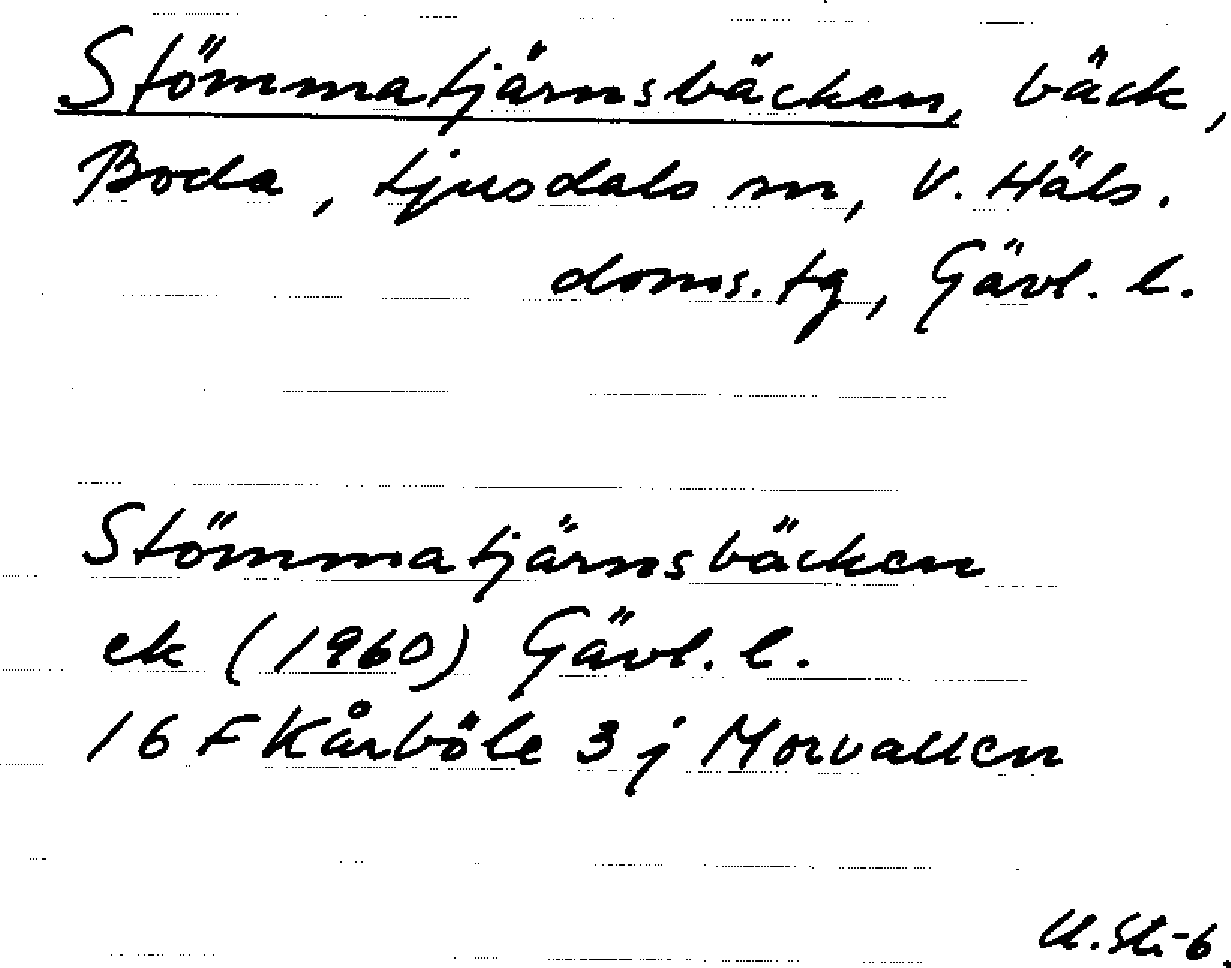 Stömmatjärnsbäcken, bäck,
Boda, Ljusdals sn, V. Häls.
doms. tg, Gävl. l.
Stömmatjärnsbäcken
ek (1960) Gävl. l.
16 F Kårböle 3 j Morvallen